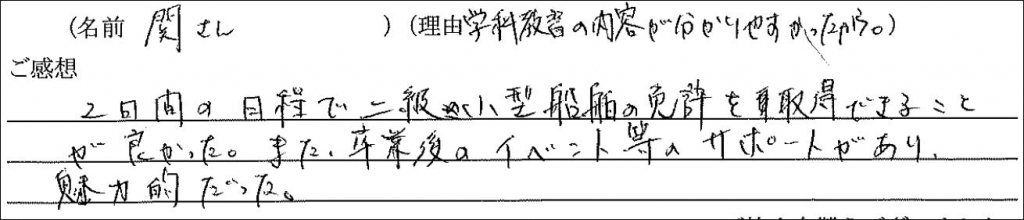 (名前 関さん ) (理由学科教習の内容が分かりやすかったから。)
ご感想
2日間の日程で二級小型船舶の免許を取得できること
が良かった。また、卒業後のイベント等のサポートがあり、
魅力的だった。